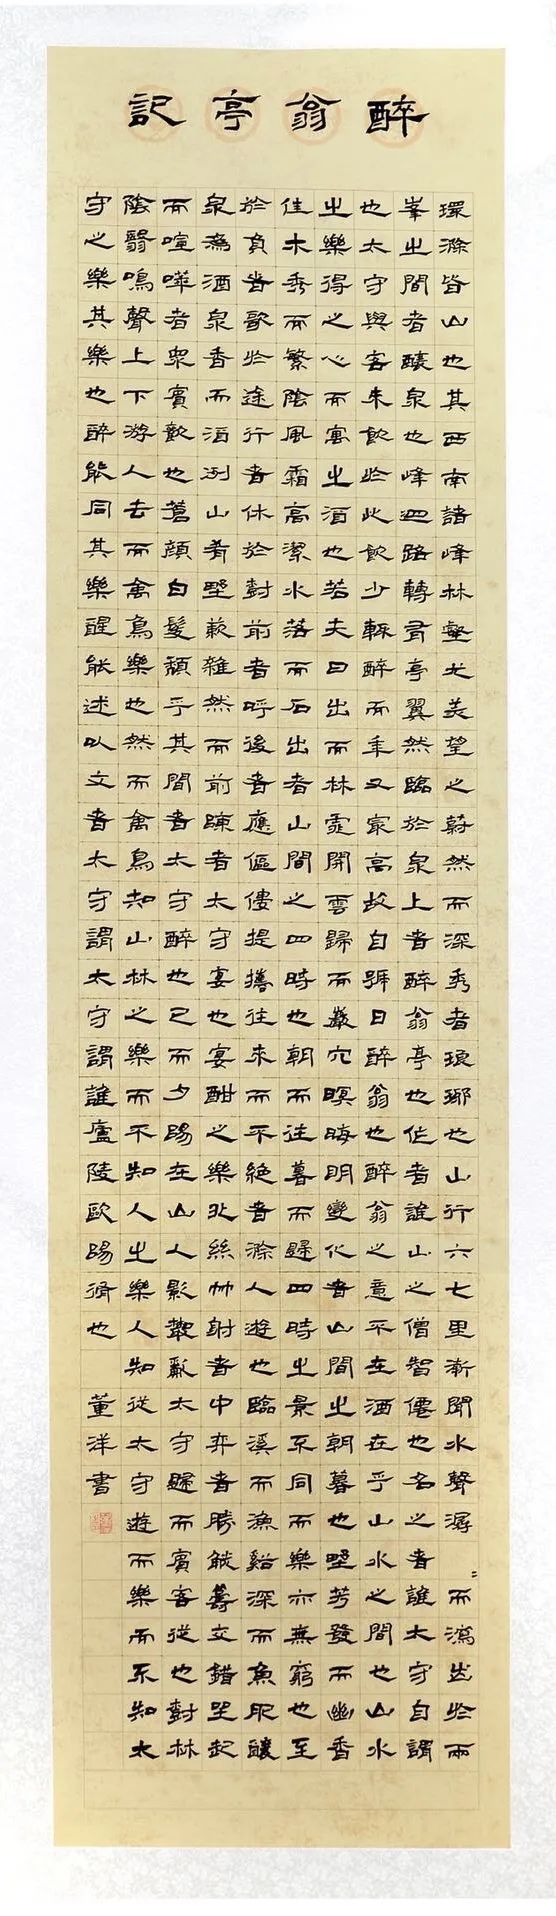 醉翁亭記
環滁皆山也其西南諸峰林壑尤美望之蔚然而深秀者琅琊也山行六七里漸聞水聲潺〻而瀉出於兩
峯之間者釀泉也峰迴路轉有亭翼然臨於泉上者醉翁亭也作者誰山之僧智僊也名之者誰太守自謂
也太守與客來飲於此飲少輒醉而年又最高故自號曰醉翁也醉翁之意不在酒在乎山水之間也山水
之樂得之心而寓之酒也若夫日出而林霏開雲歸而巖穴暝晦明變化者山間之朝暮也野芳發而幽香
佳木秀而繁陰風霜高潔水落而石出者山間之四時也朝而往暮而歸四時之景不同而樂亦無窮也至
於負者歌於途行者休於樹前者呼後者應傴僂提攜往來而不絕者滁人遊也臨溪而漁谿深而魚肥釀
泉為酒泉香而酒冽山肴野蔌雜然而前陳者太守宴也宴酣之樂非絲竹射者中弈者勝觥籌交錯坐起
而喧嘩者眾賓歡也蒼顏白髮頹乎其間者太守醉也已而夕陽在山人影散亂太守歸而賓客從也樹林
陰翳鳴聲上下游人去而禽鳥樂也然而禽鳥知山林之樂而不知人之樂人知從太守遊而樂而不知太
守之樂其樂也醉能同其樂醒能述以文者太守謂太守謂誰廬陵歐陽脩也 董洋書